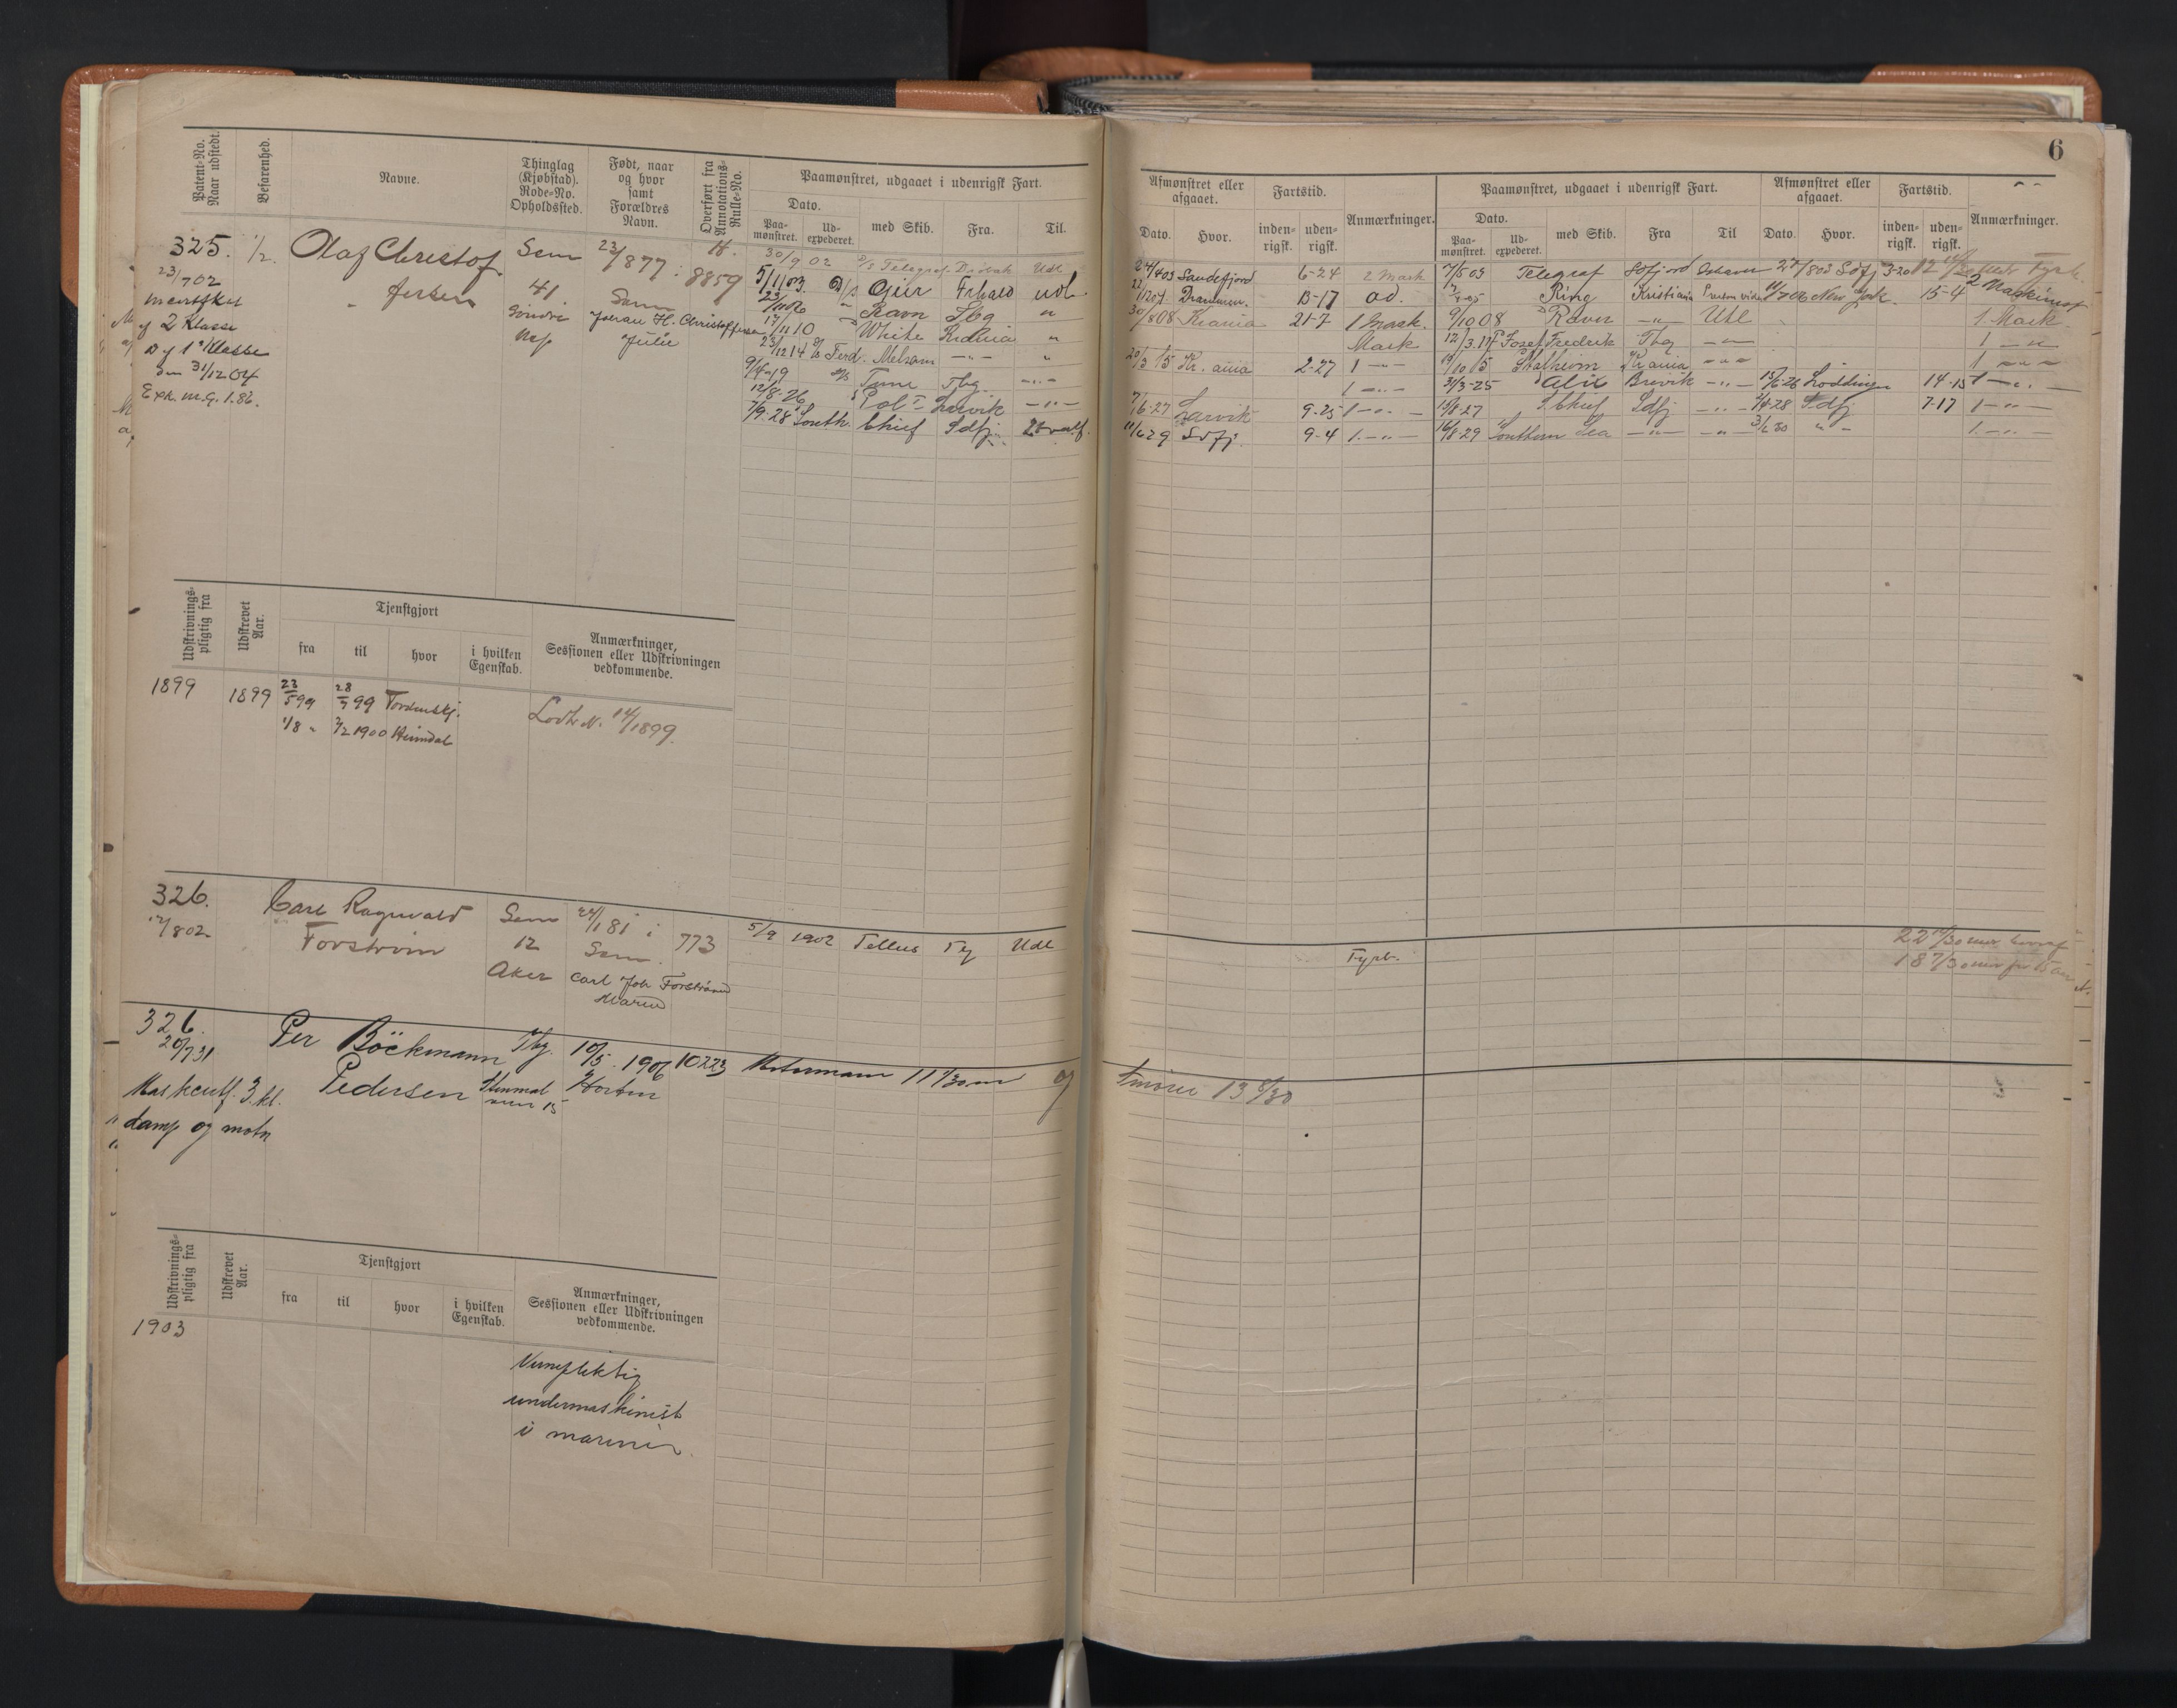 6
Patent-No. Naar udstedt.
Befarenhed.
Navne.
Thinglag (Kjøbstad). Rode-No. Opholdssted.
Født, naar og hvor samt Forældres Navn.
Overført fra Annotations-Rulle-No.
Paamønstret, udgaaet i udenrigsk Fart.
Dato.
Paa-mønstret.
Ud-expederet.
med Skib.
Fra.
Til.
Afmønstret eller afgaaet.
Dato.
Hvor.
Fartstid.
inden-rigsk.
uden-rigsk.
Anmærkninger.
Paamønstret, udgaaet i udenrigsk Fart.
Dato.
Paa-mønstret.
Ud-expederet.
med Skib.
Fra
Til
Afmønstret eller afgaaet.
Dato.
Hvor.
Fartstid.
inden-rigsk.
uden-rigsk.
Anmærkninger.
325. 1/2. Olaf Christof
23/702
y 2 Klasse
D y 1ste Klasse
den 31/12 04
Sem
41
23/877 i
Sem
Johan H. Christoffersen
Julie
H.
8859
30/9 02 D/S Telegraf Drøbak Udl
5/11 03. D/S Geir Frhald udl.
Ravn Tbg "
17/11 10 White Krania "
23/12 14 S/S Ferd. Melsom — " — "
9/4-19 D/S Tune Tbg. — " —
12/8-26 Pol I Larvik — " —
7/9-28 South. Chief Sdfj. Hvalf.
24/403 Sandefjord 6-24 2 Mask
Drammen. 13-17 ad.
30/808 Krania 21-7 1 Mask.
Mask
20/3 15 Kr.ania 2-27 1 — " —
1 — " —
7/6-27 Larvik 9-25 1 — " —
11/629 Sdfj. 9-4 1. — " —
7/5 03 Telegraf Sdfjord 27/803 Sdfj 3-20
Ring Kristiania New York. 15-4
9/10 08 Ravn — " — Utl 1 Mask
12/3.17 Josef Fredrik Tbg — " — 1 — " —
19/10 15 Stalheim Krania — " — 1 — " —
31/3-25 Alix Brevik — " — 15/6-26 Loddingen 14-15 1 — " —
15/8-27 S. Chief Sdfj — " — 2/4-28 Sdfj 7-17 1 — " —
16/8-29 Southern Sea — " — — " — 3/6 30 " — 1. — " —
Udskrivnings-pligtig fra
Udskrevet Aar.
Tjenstgjort
fra
til
hvor
i hvilken Egenskab.
Anmærkninger, Sessionen eller Udskrivningen vedkommende.
1899 1899 23/5 99 28/7 99 Tordenskj.
1/8 " 7/2 1900 Heimdal
Lodtr N. 14/1899.
326.
12/802
Carl Ragnvald
Forstrøm
Sem
12
Aker
24/1 81 i
Sem.
Carl Joh Forstrøm
Maren
773
5/9 1902 Tellus Tbg Udl
Fyrb.
326.
20/7 31
Per Böckmann
Pedersen
Tbg.
10/5. 1906
Horten
10223
Motormann 11 7/30 m og
Smører 13 8/30
Maskcertf. 3. kl.
damp og motor
Udskrivnings-pligtig fra
Udskrevet Aar.
Tjenstgjort
fra
til
hvor
i hvilken Egenskab.
Anmærkninger, Sessionen eller Udskrivningen vedkommende.
1903
Vernepliktig
undermaskinist
i marinen.